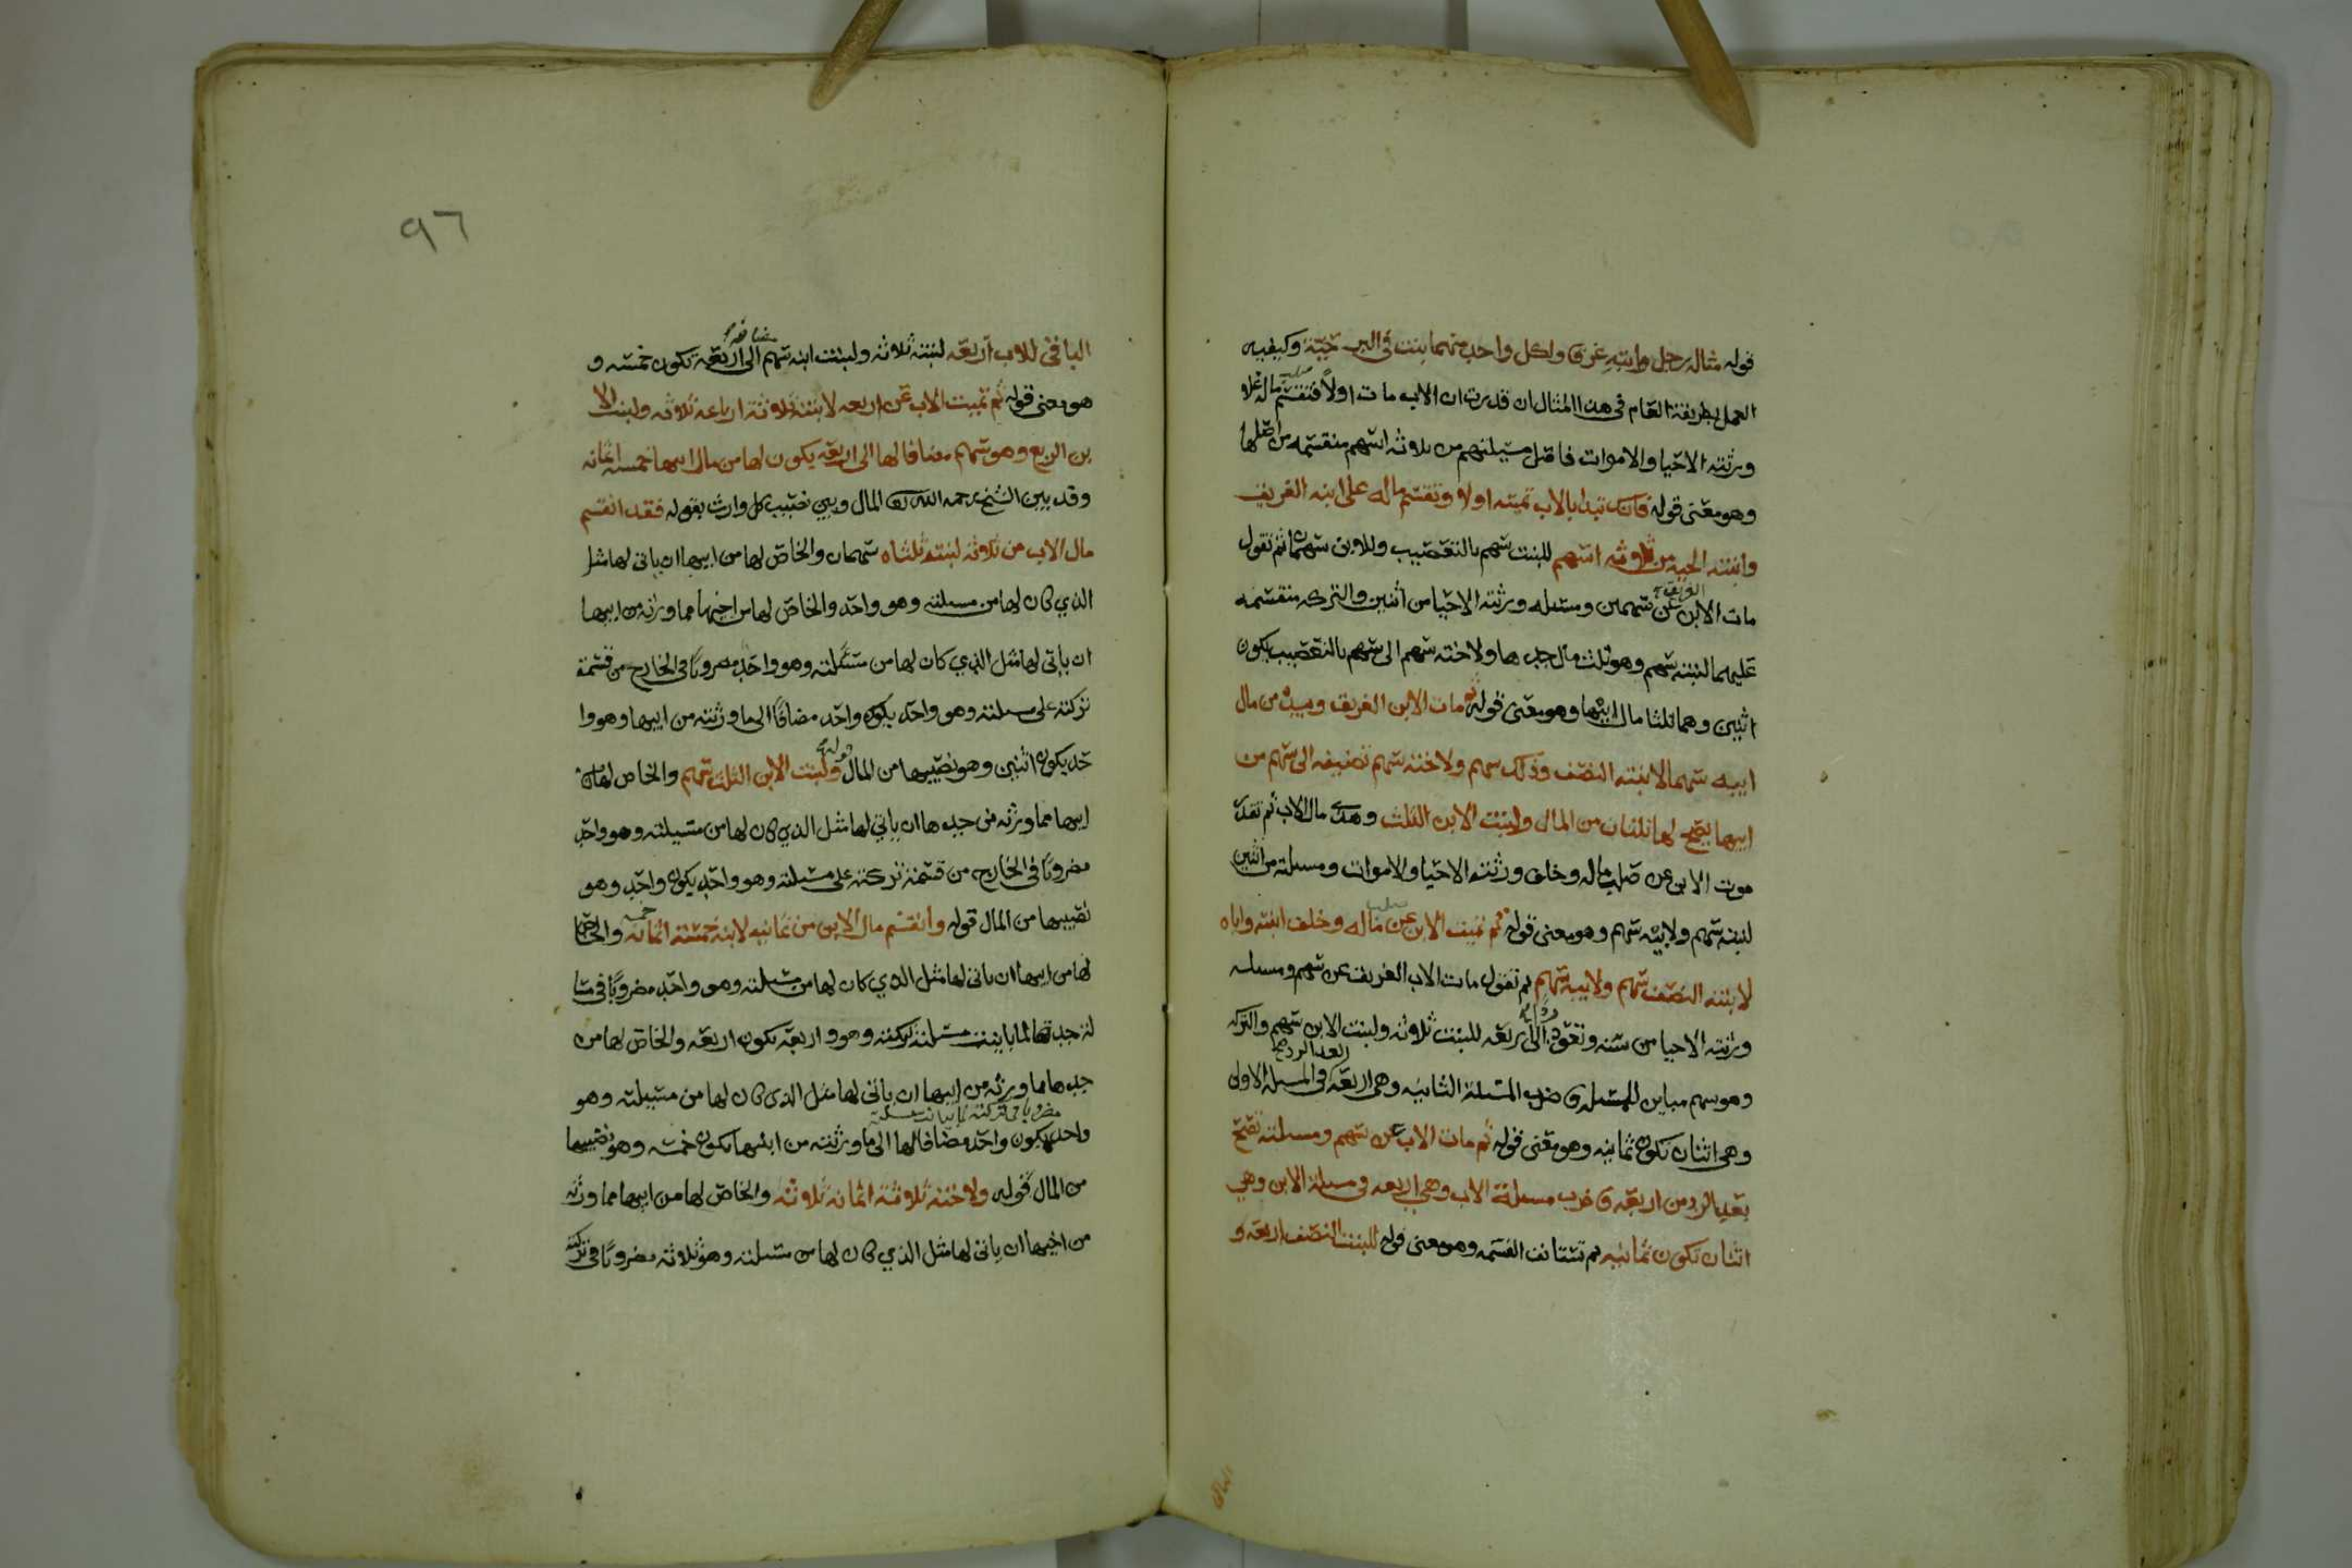 قوله مثاله رجل وابنه غرق ولكل واحد منهما بنت في البر حية وكيفيه
العمل بطريقة العام في هذا المثال ان قدرت ان الاب مات اولا فتقسم ماله على
ورثته الاحيا والاموات فاقتل مسئلتهم من ثلاثه اسهم منقسمه من اصلها
وهو معنى قوله فانك تبدا بالاب تميته اولا وتقسم ماله على ابنه الغريق
وابنته الحيه من ثلاثه اسهم للبنت سهم بالتعصيب وللابن سهمان ثم تقول
مات الابن الغريق عن سهمين ومسئله ورثته الاحيا من اثنين والتركه منقسمه
عليهما لبنته سهم وهو ثلث مال جدها ولاخته سهم الى سهم بالتعصيب يكون
اثنين وهما ثلثا مال ابيها وهو معنى قوله ثم مات الابن الغريق وميراث من مال
ابيه سهما لابنته النصف وذلك سهم ولاخته سهم تضيفه الى سهم من
ابيها يصح لها ثلثان من المال ولبنت الابن الثلث وهذا مال الاب ثم تقدر
موت الابن عن صلب ماله وخلف ورثته الاحيا والاموات ومسئلته من اثنين
لبنته سهم ولابيه سهم وهو معنى قوله ثم تميت الابن عن صلب ماله وخلف ابنته واباه
لابنته النصف سهم ولابيه سهم ثم تقول مات الاب الغريق عن سهم ومسئله
ورثته الاحيا من سته وتعود رداً الى اربعه للبنت ثلاثه ولبنت الابن سهم والتركه
وهو سهم مباين للمسئله فاضرب المسئلة الثانيه بعد الرد وهي اربعه في المسئله الاولى
وهي اثنان تكون ثمانيه وهو معنى قوله ثم مات الاب عن سهم ومسئلته تصح
بعد الرد من اربعه فاضرب مسئلة الاب وهي اربعه في مسئلة الابن وهي
اثنان تكون ثمانيه ثم تستانف القسمه وهو معنى قوله للبنت النصف اربعه و
الباقي
٩٦
الباقي للاب اربعه لبنته ثلاثه ولبنت ابنه سهم مضافه الى اربعه تكون خمسه و
هو معنى قوله ثم تميت الاب عن اربعه لابنته ثلاثة ارباعه ثلاثه ولبنت الا
بن الربع وهو سهم مضافا لها الى اربعه يكون لها من مال ابيها خمسه اثمانه
وقد بين الشيخ رحمه الله المال وبين نصيب كل وارث بقوله فقد انقسم
مال الاب من ثلاثه لبنته ثلثاه سهمان والخاص لها من ابيها ان ياتي لها مثل
الذي كان لها من مسئلته وهو واحد والخاص لها من اخيها مما ورثه من ابيها
ان ياتي لها مثل الذي كان لها من مسئلته وهو واحد مضروبا في الخارج من قسمة
تركته على مسئلته وهو واحد يكون واحد مضافا الى ما ورثته من ابيها وهو وا
حد يكون اثنين وهو نصيبها من المال قوله ولبنت الابن الثلث سهم والخاص لها من
ابيها مما ورثه من جدها ان ياتي لها مثل الذي كان لها من مسئلته وهو واحد
مضروبا في الخارج من قسمة تركته على مسئلته وهو واحد يكون واحد وهو
نصيبها من المال قوله وانقسم مال الابن من ثمانيه لابنته خمسة اثمانه خمسه والخاص
لها من ابيها ان ياتي لها مثل الذي كان لها من مسئلته وهو واحد مضروبا في مسا
لة جدها لما باينت مسئلته تركته وهو اربعه تكون اربعه والخاص لها من
جدها مما ورثه من ابيها ان ياتي لها مثل الذي كان لها من مسئلته وهو
واحد مضروبا في تركته لما باينت مسئلته يكون واحد مضافا لها الى ما ورثته من ابيها يكون خمسه وهو نصيبها
من المال قوله ولاخته ثلاثة اثمانه ثلاثه والخاص لها من ابيها مما ورثه
من اخيها ان ياتي لها مثل الذي كان لها من مسئلته وهو ثلاثه مضروبا في تركته